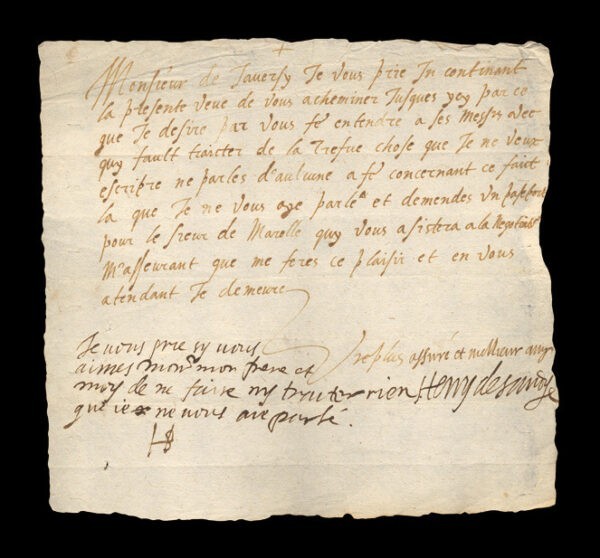 Monsieur de Taversy Je vous prie In continant
la presente veue de vous acheminer Jusques ycy par ce
que Je desire par vous fe entendre a ses Messrs avec
quy fault traicter de la Trefue chose que Je ne veux
escripre ne parles d'aulcune afe concernant ce faict
la que Je ne vous aye parle et demendes un passeport
pour le sieur de Marolle quy vous asistra a la Negotiaon
M'asseurant que me feres ce plaisir et en vous
atendant Je demeure
Vre plus assuré et melleur amy
Je vous prie sy vous
aimes monr mon frere et
moy de ne faire ny traiter rien Henry de Savoye
que ie ne vous aie parlé.
HS